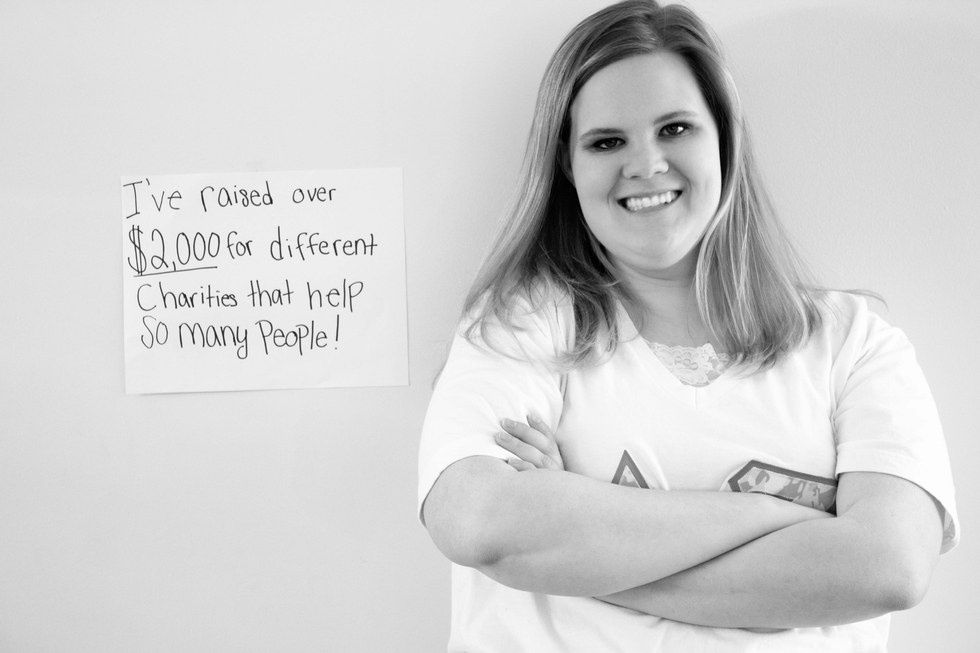 I've raised over
$2,000 for different
Charities that help
So many People!